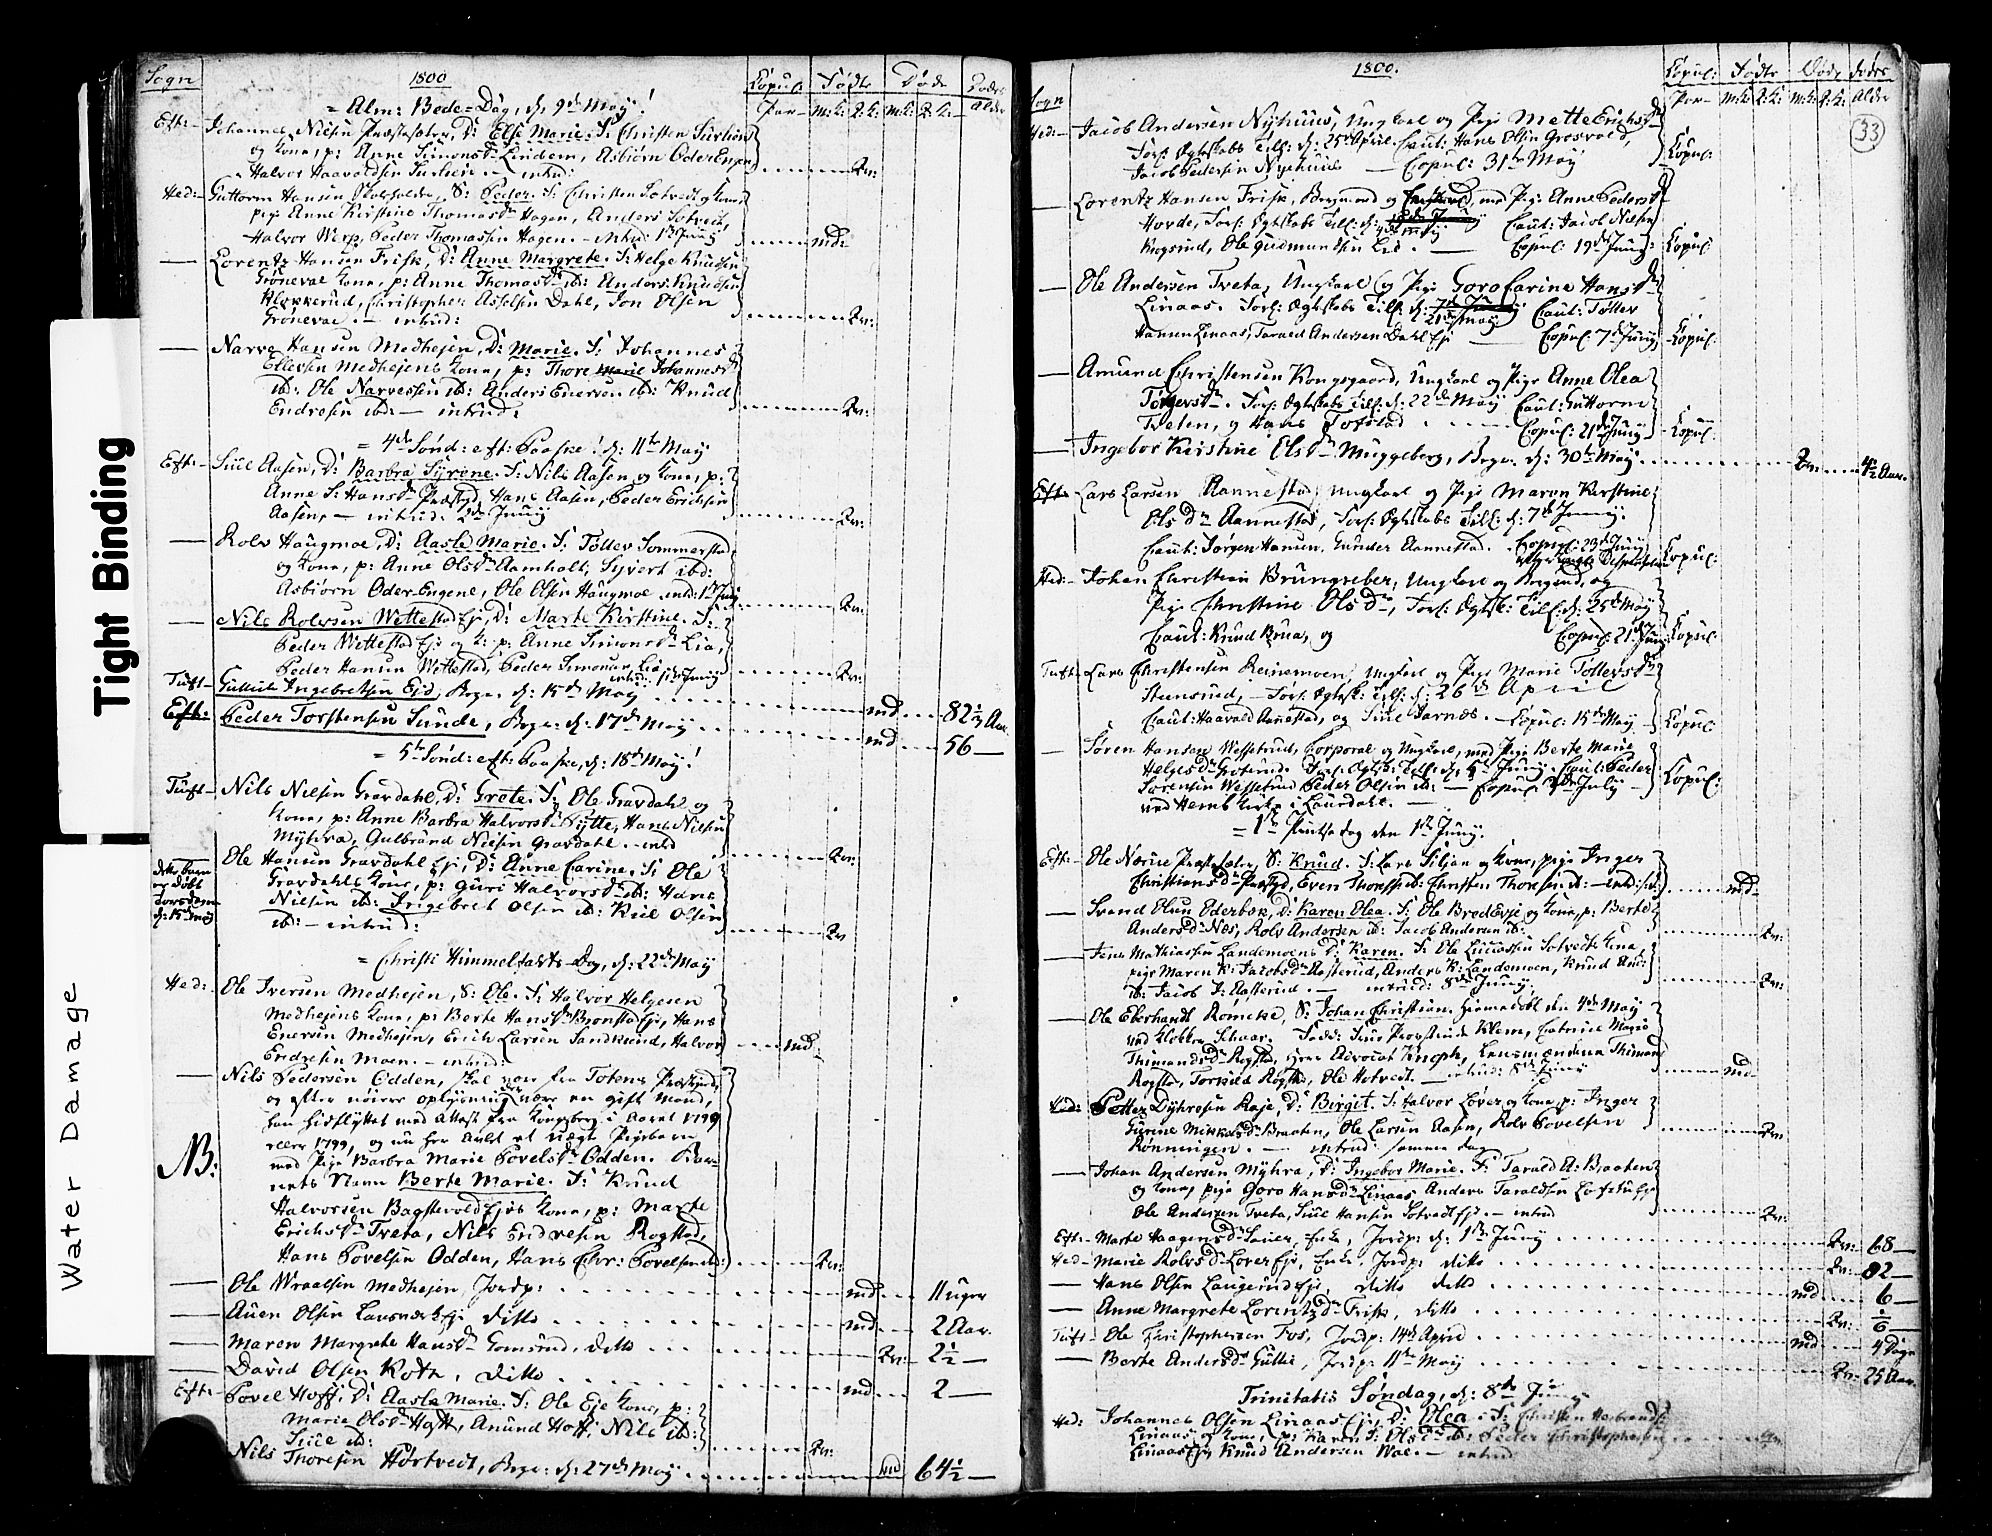 Tight Binding
Water Damage
Sogn
1800
Copul: Fødte Døde Dødes
Par M:K: Q:K: M:K: Q:K: Alder
= Alm: Bede=Dag, d: 9de May!
Eft:- Johannes Nilsen Præstesæter, D: Else Marie. F: Christen
og Kone, p: Anne Simonsdr Lindem, Asbiørn Oder Engene
Halvor Haavoldsen - introd: Qv:
Hed:- Guttorm Hansen S: Peder. F: Christen Sotvedt og Kone,
pige Anne Kirstine Thomasdr Hagen, Anders Sotvedt,
Halvor Werp, Peder Thomassen Hagen. - introd: 1ste Juny md:
— Lorentz Hansen Frisk, D: Anne Margrete. F: Helge Knudsen
Grønevae Kone, p: Anne Thomasdr ibd: Anders Knudsen
Kløkkerud, Christopher Axelsen Dahl, Jon Olsen
Grønevae. - introd: Qv:
— Narve Hansen Medhejen, D: Marie. F: Johannes
Ellevsen Medhejens Kone, p: Thore Marie Johannesdr
ibd: Ole Narvessen ibd: Anders Enersen ibd: Knud
Endresen ibd: - introd: Qv:
= 4de Sønd: eft: Paaske! d: 11te May
Eft:- Siul Aasen, D: Barbra Syrene. F: Nils Aasen og Kone, p:
Anne S: Hansdr Præstgd, Hans Aasen, Peder Erichsen
Aasen, - introd: 2de Juny Qv:
— Rolv Haugmoe, D: Aasle Marie. F: Tollev Sommerstad
og Kone, p: Anne Olsdr Aamholt, Syvert ibd:
Asbiørn Oder Engene, Ole Olsen Haugmoe introd: 1ste Juny Qv:
— Nils Rolvsen Wettestad Ej, D: Marte Kirstine. F:
Peder Wettestad Ej og K: p: Anne Simonsdr Lia,
Peder Hansen Wettestad, Peder Simonsen Lia introd: 1ste Juny Qv:
Tuft- Gullik Ingebretsen Ejd, Begr. d: 15de May md 82 1/3 Aar
Eft: Peder Torstensen Sunde, Begr. d: 17de May md 56 —
= 5te Sønd: eft: Paaske, d: 18de May!
Tuft- Nils Nilsen Gravdahl, D: Grete. F: Ole Gravdahl og
Kone, p: Anne Barbra Halvorsdr Nytte, Hans Nilsen
Myhra, Gulbrand Nilsen Gravdahl. - introd Qv:
dette barn er døbt Torsdagen d: 15de May
Ole Hansen Gravdahl Ej, D: Anne Carine. F: Ole
Gravdahls Kone, p: Guri Halvorsdr ibd: Hans
Nilsen ibd: Ingebret Olsen ibd: Kiel Olsen
ibd: - introd: Qv
= Christi Himmelfarts=Dag, d: 22de May
Hed:- Ole Iversen Medhejen, S: Ole. F: Halvor Helgesen
Medhejens Kone, p: Berte Hansdr Bronstad Ej, Hans
Enersen Medhejen, Erich Larsen Sandkund, Halvor
Endresen Moen. - introd: md
NB: — Nils Pedersen Odden, skal være fra Totens Præstegield,
og efter nøiere oplysning være en gift Mand,
han hidflyttet med Attest fra Kongsberg i Aaret 1799
1799, og nu har Avlet et uægte Pigebarn
med Pige Barbra Marie Povelsdr Odden. Bar-
nets Navn Berte Marie. F: Knud
Halvorsen Bagstevold Ejes Kone, p: Marte
Erichsdr Tveta, Nils Endresen Rogstad,
Hans Povelsen Odden, Hans Chr: Povelsen ibd: Qv:
— Ole Wraalsen Medhejen, Jordp: md 11 uger
— Auen Olsen Ej ditto md 2 Aar.
— Maren Margrete Hansdr Gomsrud, ditto Qv: 2 1/2 —
— David Olsen Koth, ditto md 2 —
Eft:- Povel Hoff, D: Aasle Marie. F: Ole Eje Kone, p:
Marie Olsdr Hoff, Amund Hoff, Nils ibd:
Siul ibd: Qv:
Nils Thoresen Hørtvedt, Begr: d: 27de May md 64 1/2 —
Sogn
1800.
Copul: Fødte Døde Dødes
Par M:K: Q:K: M:K: Q:K: Alder
33
Hed:- Jacob Andersen Nyhuus, Ungkarl og Pige Mette Erichsdr
Forl: Egteskabs Tilf: d: 25de April. Caut: Hans Olsen Grosvold,
Jacob Pedersen Nyehuus — Copul: 31te May Copul:
— Lorentz Hansen Frisk, Bergmand og med Pige Anne Pedersdr
Hovde, Forl: Egteskabs Tilf: d: May Caut: Jacob Nilsen
Mogsrud, Ole Gudmundsen Lid. — Copul: 19de Juny: Copul:
— Ole Andersen Tveta, Ungkarl og Pige Goro Carine Hansdr
Linaas. Forl: Egteskabs Tilf: d: 21de May Caut: Tollev
Hansen Linaas, Tarald Andersen Dahl Ej — Copul: 7de Juny Copul:
— Amund Christensen Kongsgaard, Ungkarl og Pige Anne Olea
Torgersdr. Forl: Egteskabs Tilf: d: 22de May Caut: Guttorm
Tveten, og Hans Tofstad Copul: 21de Juny Copul:
— Ingebor Kirstine Elsdr Muggeborg, Begr. d: 30te May Qv: 4 1/2 Aar.
Eft- Lars Larsen Aannestad, Ungkarl og Pige Maren Kirstine
Olsdr Aannestad, Forl: Egteskabs Tilf: d: 7de Juny.
Caut: Jørgen Hansen. Gunder Aannestad. Copul: 23de Juny Copul:
Hed:- Johan Christian Brungreber, Ungkarl og Bergmd, og
Pige Christine Olsdr, Forl: Egtesk: Tilf: d: 25de May
Caut: Knud Krua, og Copul: 21de Juny Copul:
Tuft- Lars Christensen Reinemoen, Ungkarl og Pige Marie Tollevsdr
Stensrud, - Forl: Egtesk: Tilf: d: 26de April
Caut: Haavold Aanestad, og Siul Jarnæs. - Copul: 15de May Copul:
— Søren Hansen Wessetrud, Corporal og Ungkarl, med Pige Berte Marie
Helgesdr Forl: Egtesk: Tilf: d: Juny. Caut: Peder
Sørensen Wessetrud Peder Olsen ibd: - Copul: July Copul:
ved Hems Kirke i Laurdahl. —
= 1ste Pintsedag den 1ste Juny.
Eft:- Ole Nerue Præstesæter, S: Knud. F: Lars Siljan og Kone, pige Inger
Christiansdr Præstgd, Even Thoress ibd: Christen Thoresen ibd: - introd: md
— Svend Olsen Ederbok, D: Karen Olea. F: Ole Bred Evje og Kone, p: Berte
Andersdr Næs, Rolv Andersen ibd: Jacob Andersen ibd: Qv:
— Jens Mathiassen Landemoens D: Karen. F: Ole Sotvedts Kone,
pige Maren K: Jacobsdr Aasterud, Anders K: Landemoen, Knud And:
ibd: Jacob J: Aasterud. - introd: 8de Juny. Qv:
— Ole Eberhardt Rømcke, S: Johan Christian. Hiemedøbt den 4de May
ved Klokker Schaar. Fadd: Klem, Catrine Marie
Thimandsdr Rogstad, Herr Advocat Knoph, Lensmændene Thimand
Rogstad, Torkild Rogstad, Ole Hotvedt. - introd: 8de Juny md
Hed: Petter Dyhresen Raje, D: Birgit. F: Halvor Løver og Kone, p: Inger
Gurine Mikkelsdr Braaten, Ole Larsen Aasen, Rolv Povelsen
Rønningen. - introd: samme dag Qv:
— Johan Andersen Myhra, D: Ingebor Marie. F: Tarald A: Braaten
og Kone, pige Goro Hansdr Linaas, Anders Taraldsen Lofthuus
Ole Andersen Tveta, Siul Hansen Sotvedt Ej. - introd Qv:
Eft:- Marte Haagensdr Enke, Jordp: d: 1ste Juny Qv: 68 —
Hed- Marie Rolvsdr Løver Ej, Enke, Jordp: ditto Qv: 82 —
— Hans Olsen Laugerud Ej, ditto ditto md 6 —
— Anne Margrete Lorentzdr Frisk, ditto Qv: 1/6 —
Tuft- Ole Christophersen Fos, Jordp: 14de April md 4 Dage
— Berte Andersdr Gullie, Jordp: 11te May Qv: 25 Aar.
Trinitatis Søndag, d: 8de Juny
Hed: Johannes Olsen Linaas Ej, D: Olea. F: Christen
Linaas og Kone, p: Karen F: Olsdr ibd: Peder Christophersen
Linaas Ej Knud Andersen Wae. - introd